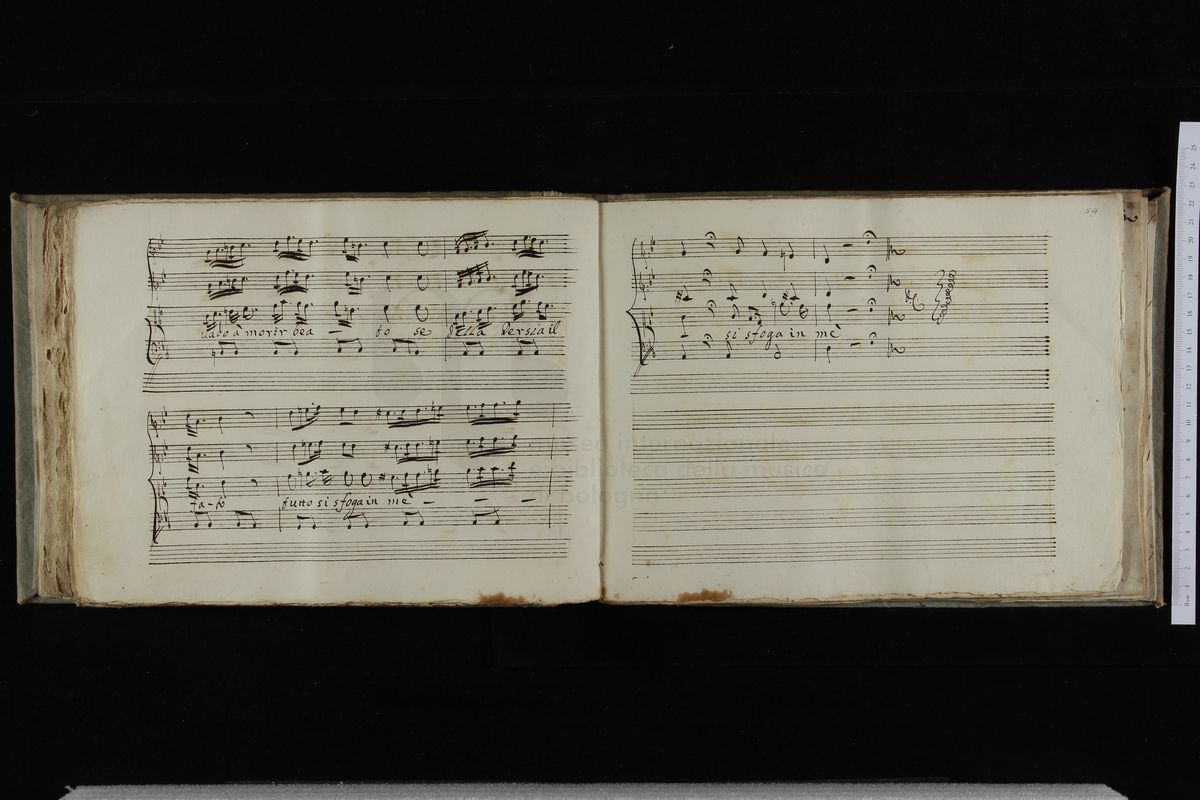 uado à morir bea - to se della Persia il
fa-to tutto si sfoga in mè - - -
54
si sfoga in mè
museo internazionale
e biblioteca della musica
bologna